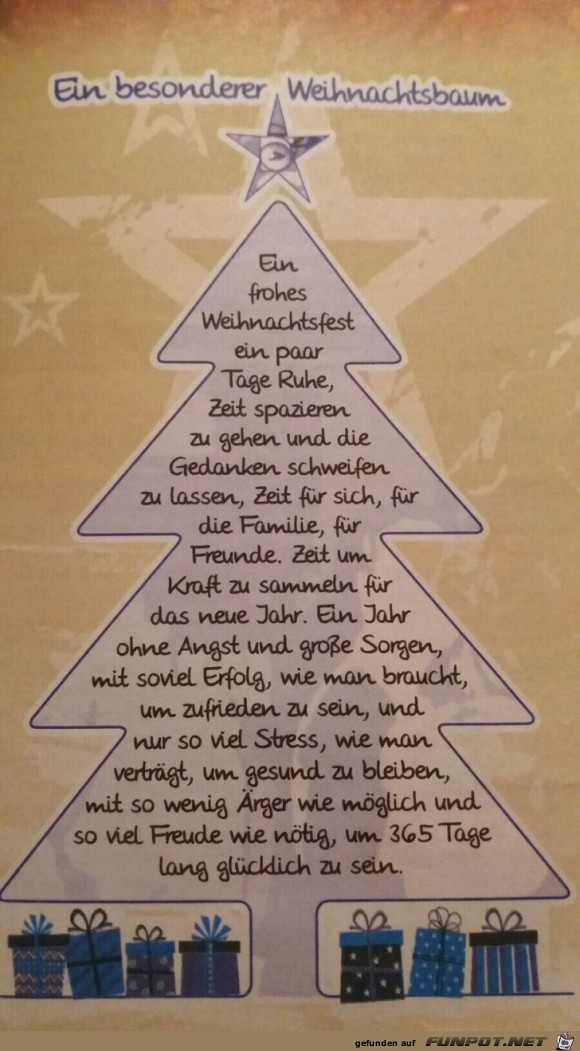 Ein besonderer Weihnachtsbaum
Ein
frohes
Weihnachtsfest
ein paar
Tage Ruhe,
Zeit spazieren
zu gehen und die
Gedanken schweifen
zu lassen, Zeit für sich, für
die Familie, für
Freunde. Zeit um
Kraft zu sammeln für
das neue Jahr. Ein Jahr
ohne Angst und große Sorgen,
mit soviel Erfolg, wie man braucht,
um zufrieden zu sein, und
nur so viel Stress, wie man
verträgt, um gesund zu bleiben,
mit so wenig Ärger wie möglich und
so viel Freude wie nötig, um 365 Tage
lang glücklich zu sein.
gefunden auf FUNPOT.NET